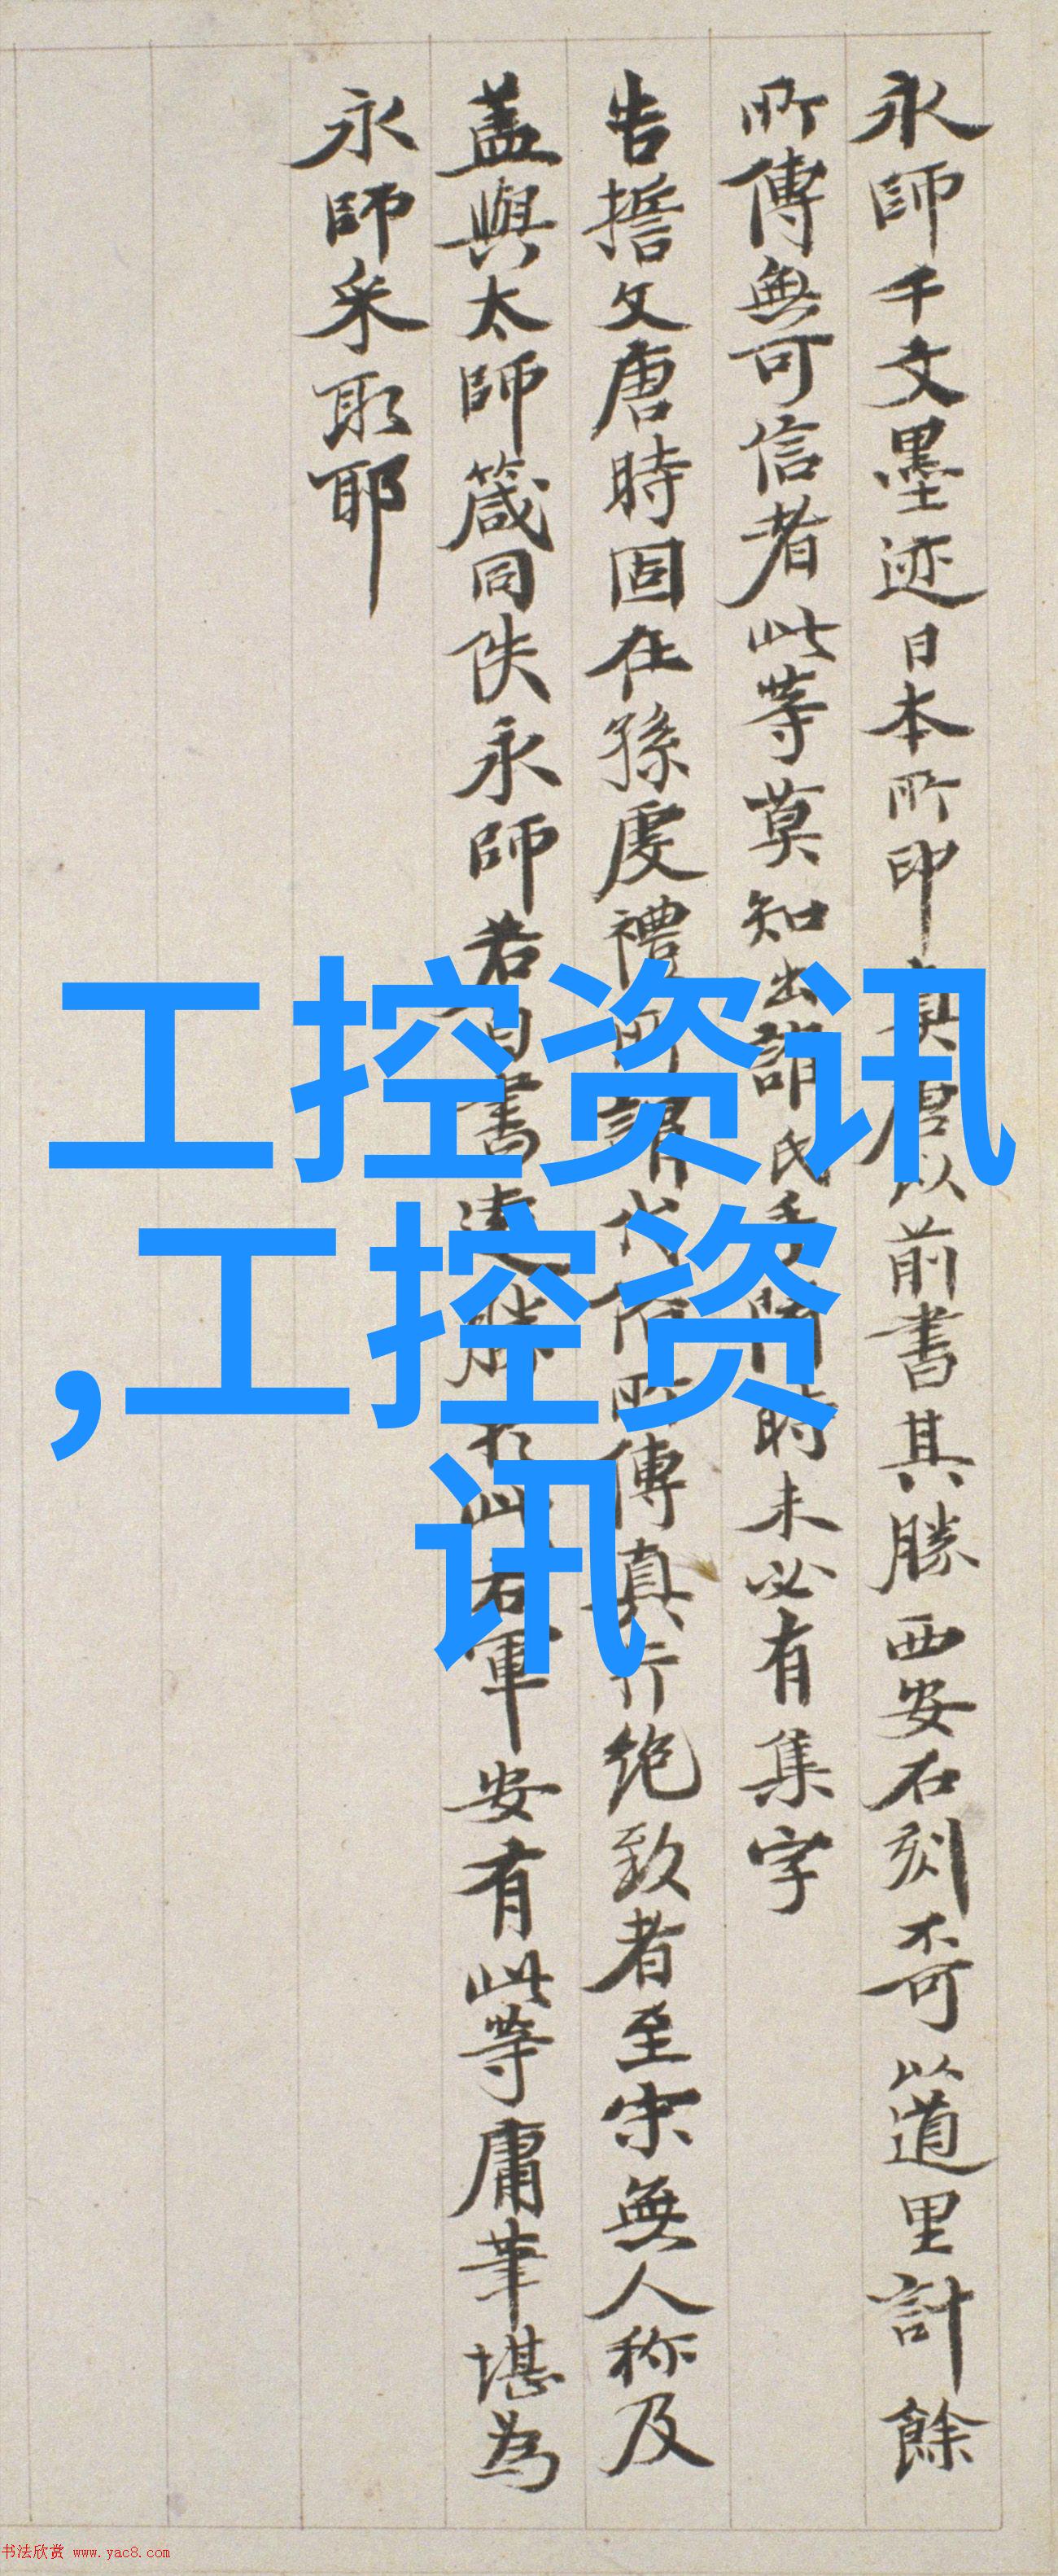 永師千文墨迹日本所印真唐以前書其勝西安石刻奇以道里計餘
所傳無可信者此等莫知出誰氏手隋時未必有集字
告誓文唐時固在孫虔禮所謂代所傳真行绝致者至宋無人称及
盖與太師箴同佚永師若自書遠勝於此右軍安有此等庸筆堪為
永師采取耶
工控资讯
,工控资
讯
书法欣赏 www.yac8.com